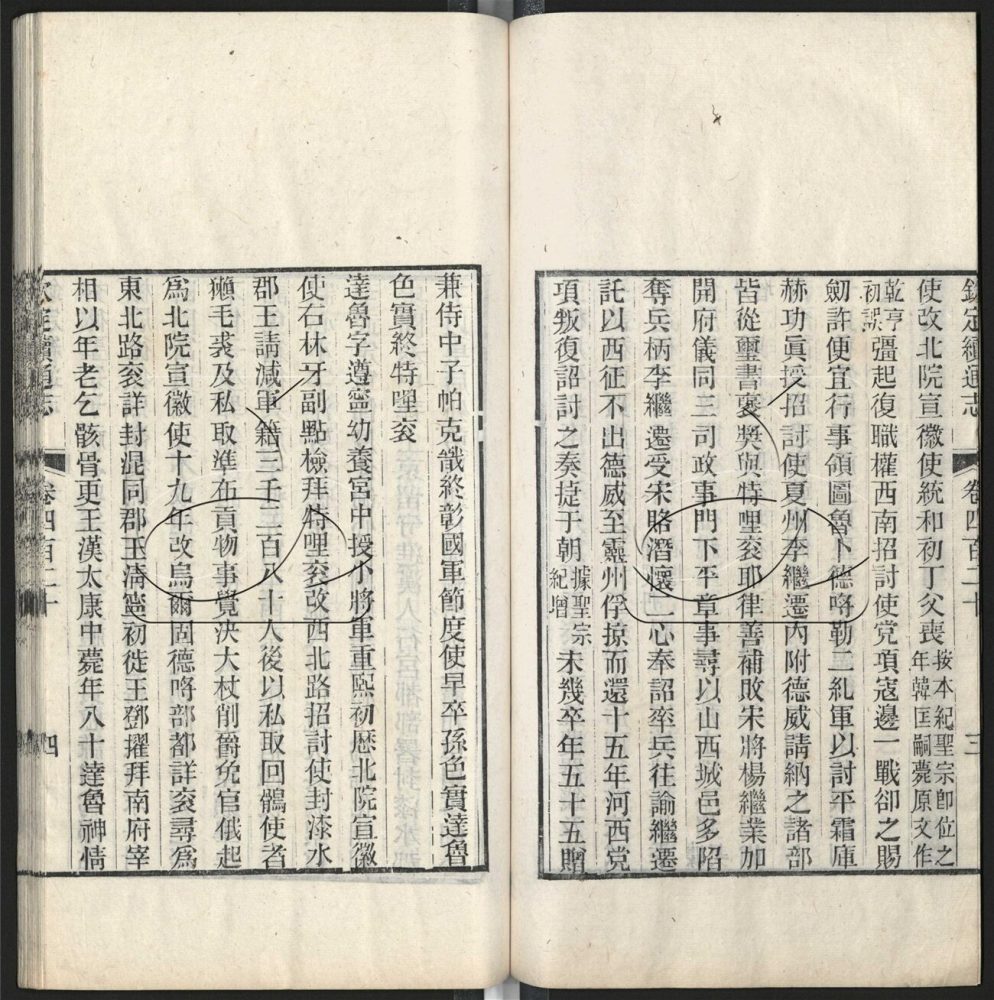 欽定續通志 卷四百二十 三
使改北院宣徽使統和初丁父喪按本紀聖宗卽位之年韓匡嗣薨原文作
乾亨初誤彊起復職權西南招討使党項寇邊一戰卻之賜
劒許便宜行事領圖魯卜德哷勒二糺軍以討平霜庫
赫功眞授招討使夏州李繼遷內附德威請納之諸部
皆從璽書褒奬與特哩衮耶律善補敗宋將楊繼業加
開府儀同三司政事門下平章事尋以山西城邑多陷
奪兵柄李繼遷受宋賂潛懷二心奉詔率兵往諭繼遷
託以西征不出德威至靈州俘掠而還十五年河西党
項叛復詔討之奏捷于朝據聖宗紀增未幾卒年五十五贈
兼侍中子帕克戩終彰國軍節度使早卒孫色實達魯
色實終特哩衮
達魯字遵寧幼養宮中授小將軍重熙初歷北院宣徽
使右林牙副點檢拜特哩衮改西北路招討使封漆水
郡王請減軍籍三千二百八十人後以私取回鶻使者
獺毛裘及私取準布貢物事覺決大杖削爵免官俄起
爲北院宣徽使十九年改烏爾固德哷部都詳衮尋爲
東北路衮詳封混同郡王淸寧初徙王鄧擢拜南府宰
相以年老乞骸骨更王漢太康中薨年八十達魯神情
欽定續通志 卷四百二十 四